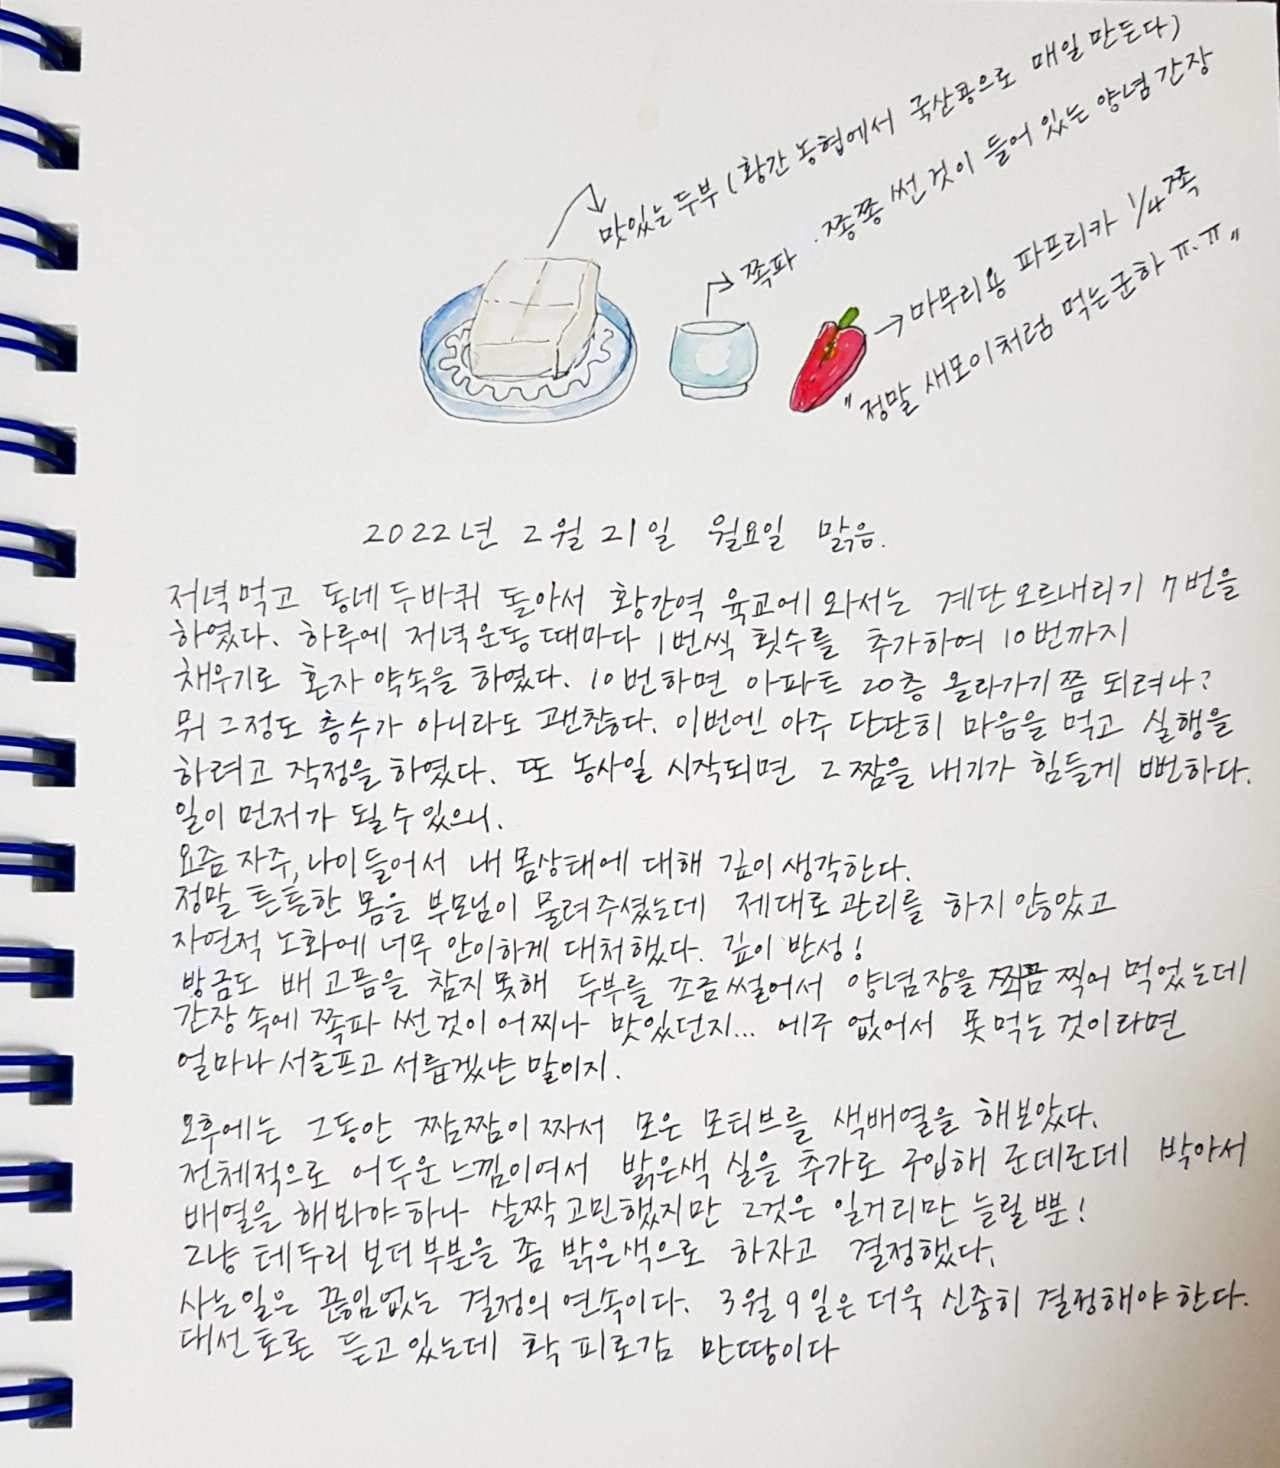 맛있는 두부 (황간 농협에서 국산콩으로 매일 만든다)
쪽파 쫑쫑 썬것이 들어 있는 양념 간장
마무리용 파프리카 1/4쪽
"정말 새모이처럼 먹는군하 ㅠ.ㅠ"
2022년 2월 21일 월요일 맑음.
저녁먹고 동네두바퀴 돌아서 황간역 육교에 와서는 계단오르내리기 7번을
하였다. 하루에 저녁운동때마다 1번씩 횟수를 추가하여 10번까지
채우기로 혼자 약속을 하였다. 10번하면 아파트 20층 올라가기쯤 되려나?
뭐 그정도 층수가 아니라도 괜찮다. 이번엔 아주 단단히 마음을 먹고 실행을
하려고 작정을 하였다. 또 농사일 시작되면 그 짬을 내기가 힘들게 뻔하다.
일이 먼저가 될수있으니.
요즘 자주, 나이들어서 내 몸상태에 대해 깊이 생각한다.
정말 튼튼한 몸을 부모님이 물려주셨는데 제대로 관리를 하지 않았고
자연적 노화에 너무 안이하게 대처했다. 깊이 반성!
방금도 배고픔을 참지못해 두부를 조금썰어서 양념장을 찍어 먹었는데
간장속에 쪽파 썬것이 어찌나 맛있던지... 에구 없어서 못먹는 것이라면
얼마나 서글프고 서럽겠냔 말이지.
오후에는 그동안 짬짬이 짜서 모은 모티브를 색배열을 해보았다.
전체적으로 어두운느낌이여서 밝은색 실을 추가로 구입해 군데군데 박아서
배열을 해봐야하나 살짝 고민했지만 그것은 일거리만 늘릴 뿐!
그냥 테두리 보더부분을 좀 밝은색으로 하자고 결정했다.
사는일은 끊임없는 결정의 연속이다. 3월 9일은 더욱 신중히 결정해야 한다.
대선토론 듣고있는데 확 피로감 만땅이다